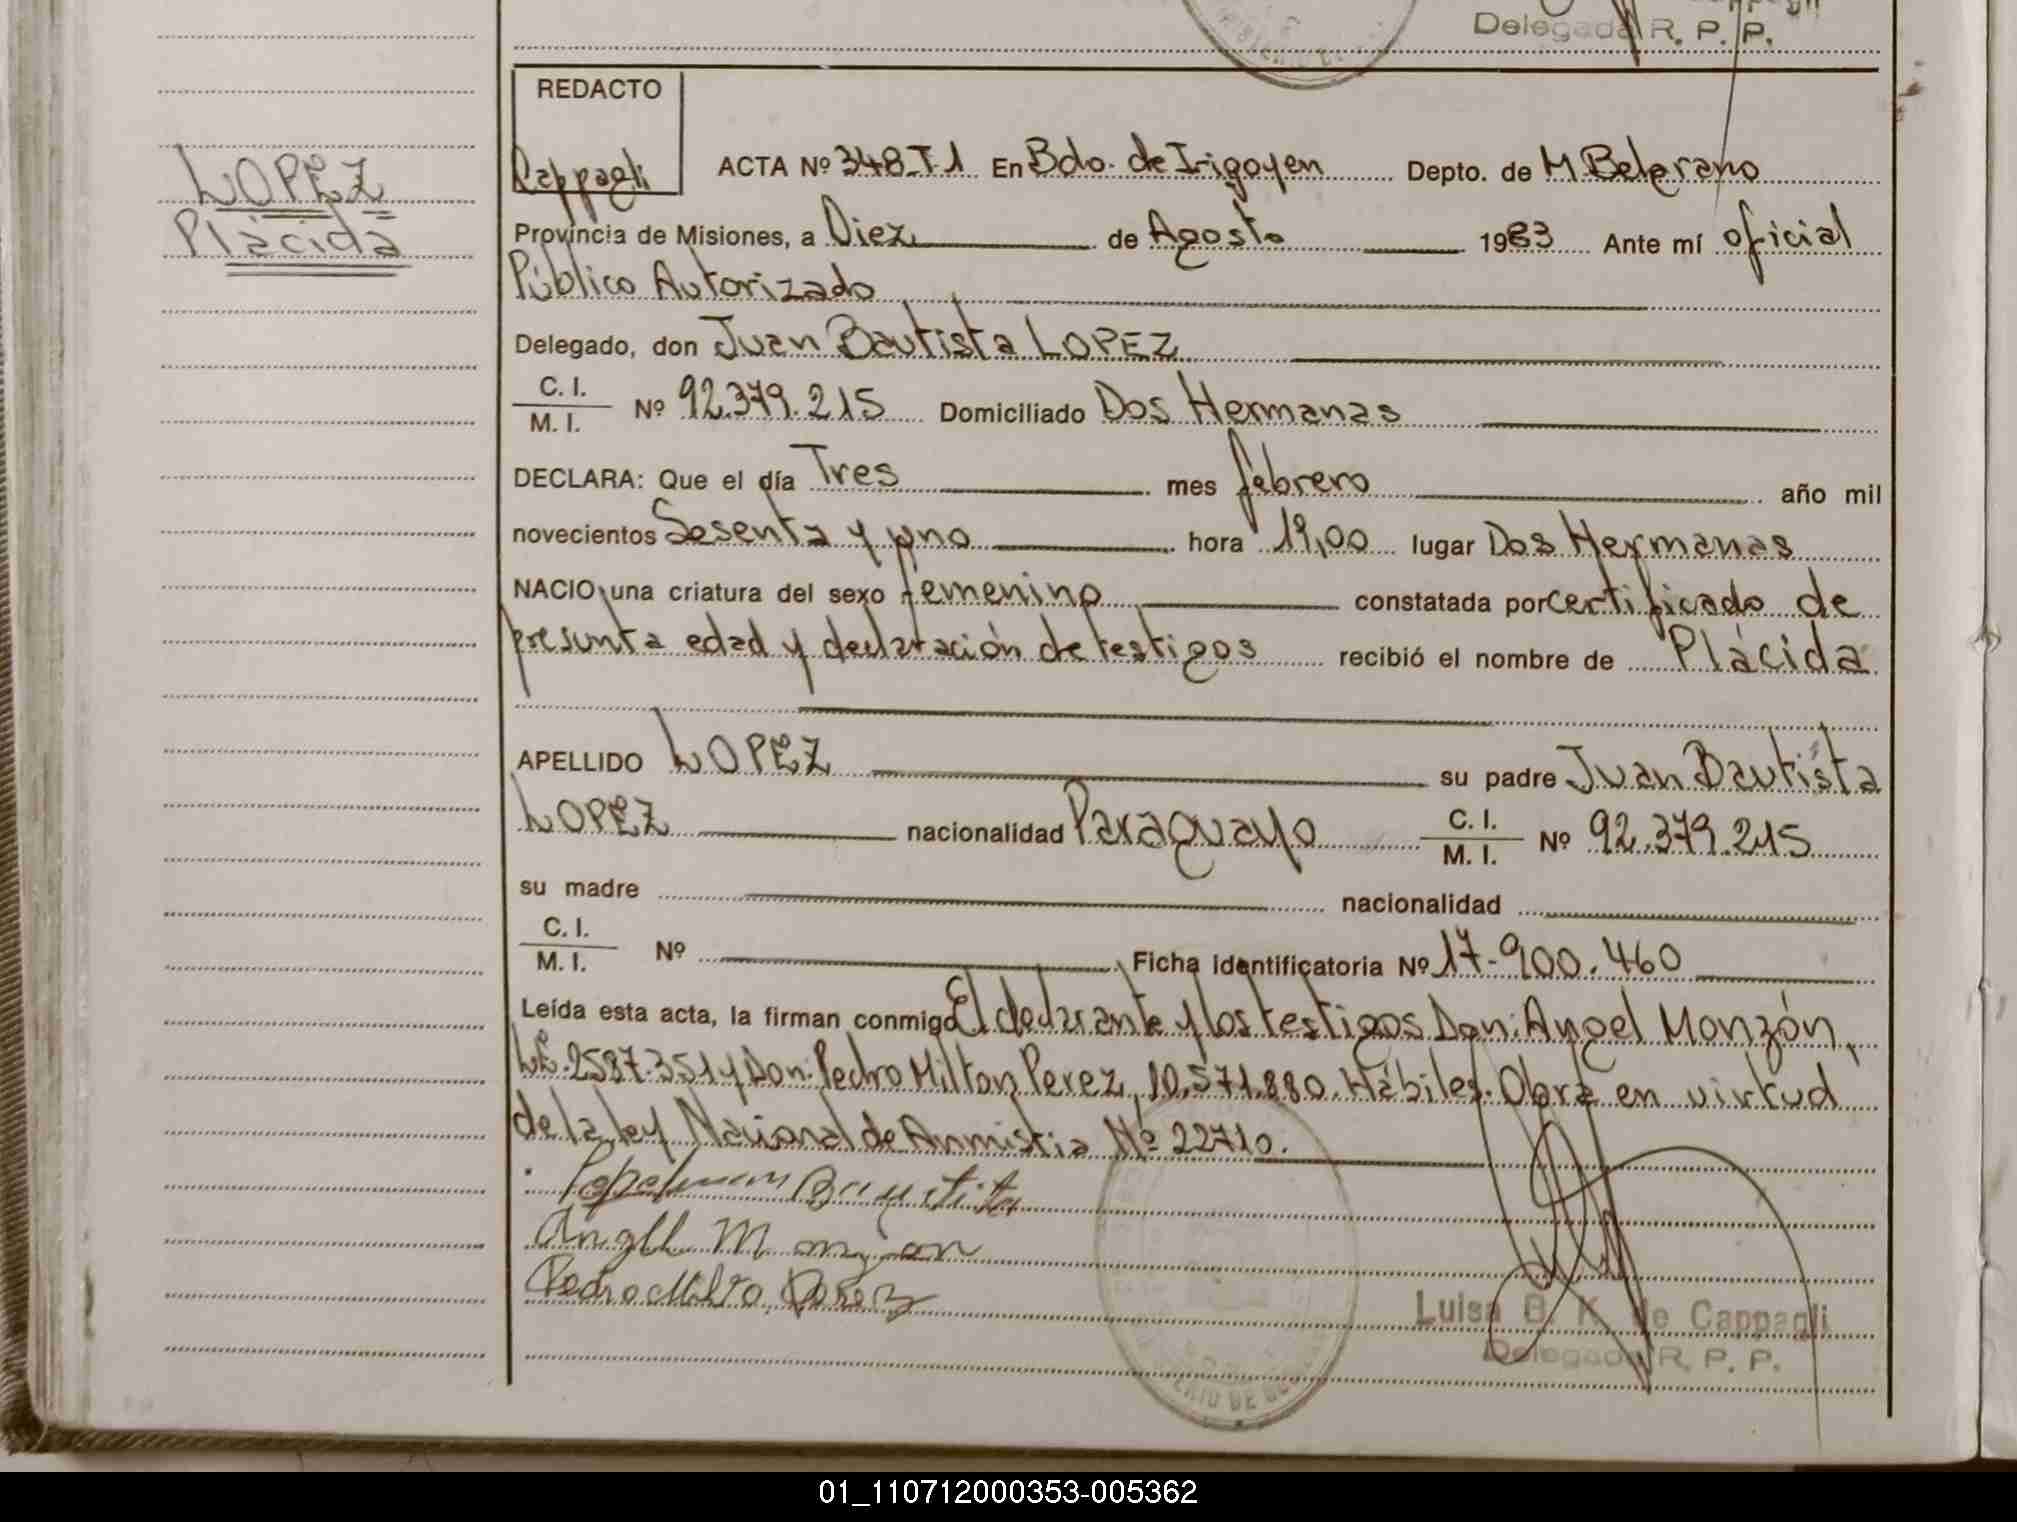 Delegada R. P. P.
REDACTO
Cappagli
LOPEZ
Plácida
ACTA Nº 348-T1 En Bdo. de Irigoyen Depto. de M Belgrano
Provincia de Misiones, a Diez de Agosto 1983 Ante mí oficial
Público Autorizado
Delegado, don Juan Bautista LOPEZ
C. I.
M. I. Nº 92.379.215 Domiciliado Dos Hermanas
DECLARA: Que el día Tres mes febrero año mil
novecientos Sesenta y uno hora 19,00 lugar Dos Hermanas
NACIO una criatura del sexo femenino constatada por certificado de
presunta edad y declaración de testigos recibió el nombre de Plácida
APELLIDO LOPEZ su padre Juan Bautista
LOPEZ nacionalidad Paraguayo C. I. M. I. Nº 92.379.215
su madre nacionalidad
C. I.
M. I. Nº Ficha identificatoria Nº 17-900.460
Leída esta acta, la firman conmigo El declarante y los testigos Don: Angel Monzón,
LE. 2587.351 y Don: Pedro Milton Perez, 10.571.880. Hábiles. Obra en virtud
de la ley Nacional de Anmistia Nº 22710.
Bautista
Angel Monzon
Pedro Milto Perez
Luisa B. K. de Cappagli
Delegada R. P. P.
01_110712000353-005362